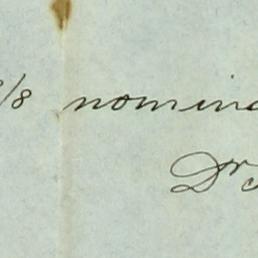 /8 nomin
Dr